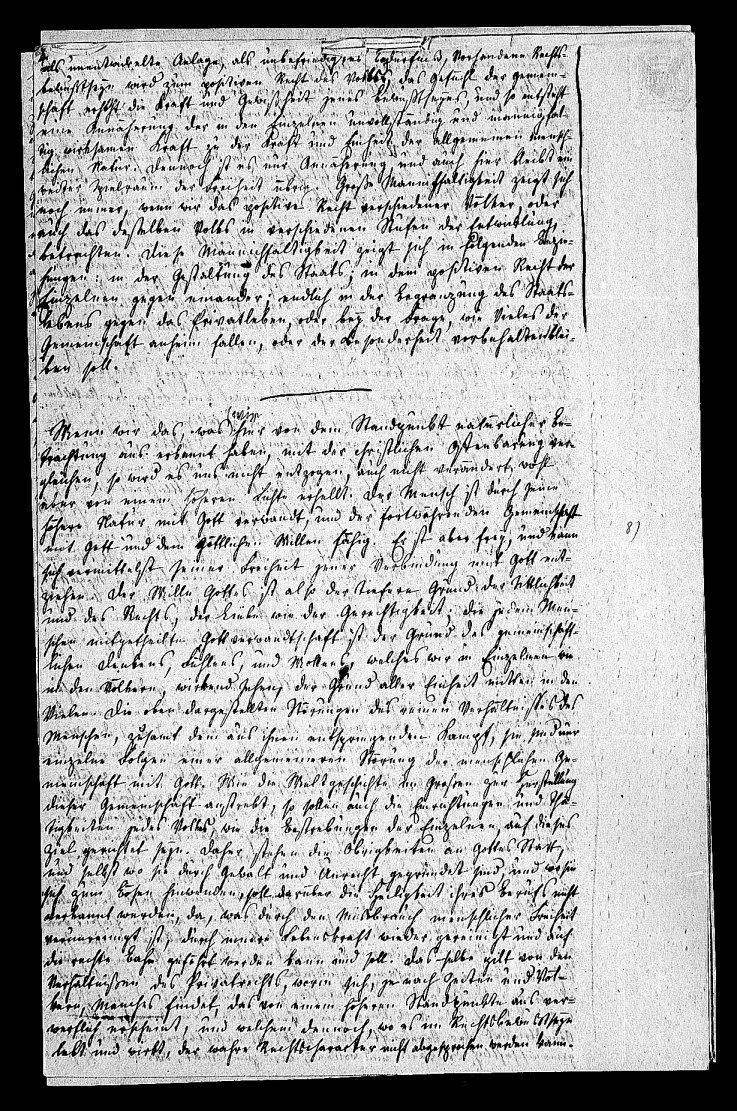 als unentwickelte Anlage, als unbefriedigtes Bedürfniß, vorhandene Rechts-
bewußtseyn wird zum positiven Recht des Volks, das Gefühl der Gemein-
schaft erhöht die Kraft und Gewißheit jenes Bewußtseyns, und so entsteht
eine Annäherung der in den Einzelnen unvollständig und mannichfal-
tig wirksamen Kraft zu der Kraft und Einheit der allgemeinen mensch-
lichen Natur. Dennoch ist es nur Annäherung, und auch hier bleibt ein
weiter Spielraum der Freiheit übrig. Große Mannichfaltigkeit zeigt sich
noch immer, wenn wir das positive Recht verschiedener Völker, oder
auch das desselben Volks in verschiedenen Stufen der Entwicklung,
betrachten. Diese Mannichfaltigkeit zeigt sich in folgenden Bezie-
hungen: in der Gestaltung des Staats; in dem positiven Recht der
Einzelnen gegen einander; endlich in der Begränzung des Staats-
lebens gegen das Privatleben, oder bey der Frage, wie vieles der
Gemeinschaft anheim fallen, oder der Besonderheit vorbehalten blei-
ben soll.
Wenn wir das, was wir hier von dem Standpunkt natürlicher Be-
trachtung aus erkannt haben, mit der christlichen Offenbarung ver-
gleichen, so wird es uns nicht entzogen, auch nicht verändert, wohl
aber von einem höheren Lichte erhellt. Der Mensch ist durch seine
höhere Natur mit Gott verwandt, und der fortwährenden Gemeinschaft
mit Gott und dem göttlichen Willen fähig. Er ist aber frey, und kann
sich vermittelst seiner Freiheit jener Verbindung mit Gott ent-
ziehen. Der Wille Gottes ist also der tiefere Grund der Sittlichkeit
und des Rechts, der Liebe wie der Gerechtigkeit; die jedem Men-
schen mitgetheilte Gottverwandtschaft ist der Grund des gemeinschaft-
lichen Denkens, Fühlens, und Wollens, welches wir in Einzelnen wie
in den Völkern, wirkend sehen, der Grund aller Einheit mitten in den
Vielen. Die oben dargestellten Störungen des reinen Verhältnisses des
Menschen, zusamt dem aus ihnen entspringenden Kampf, sie sind nur
einzelne Folgen einer allgemeineren Störung der menschlichen Ge-
meinschaft mit Gott. Wie die Weltgeschichte im Großen zur Herstellung
dieser Gemeinschaft anstrebt, so sollen auch die Einrichtungen und Thä-
tigkeiten jedes Volkes, wie die Bestrebungen der Einzelnen, auf dieses
Ziel gerichtet seyn. Daher stehen die Obrigkeiten an Gottes Statt,
und selbst wo sie durch Gewalt und Unrecht gegründet sind, und wo sie
sich zum Bösen hinwenden, soll darüber die Heiligkeit ihres Berufs nicht
verkannt werden, da, was durch den Misbrauch menschlicher Freiheit
verunreinigt ist, durch innere Lebenskraft wieder gereinigt und auf
die rechte Bahn geführt werden kann und soll. Dasselbe gilt von den
Verhältnissen des Privatrechts, worin sich, je nach Zeiten und Völ-
kern, Manches findet, das von einem höheren Standpunkte aus ver-
werflich erscheint, und welchem dennoch, wo es im Rechtsbewußtseyn
lebt und wirkt, der wahre Rechtscharacter nicht abgesprochen werden kann.
8)